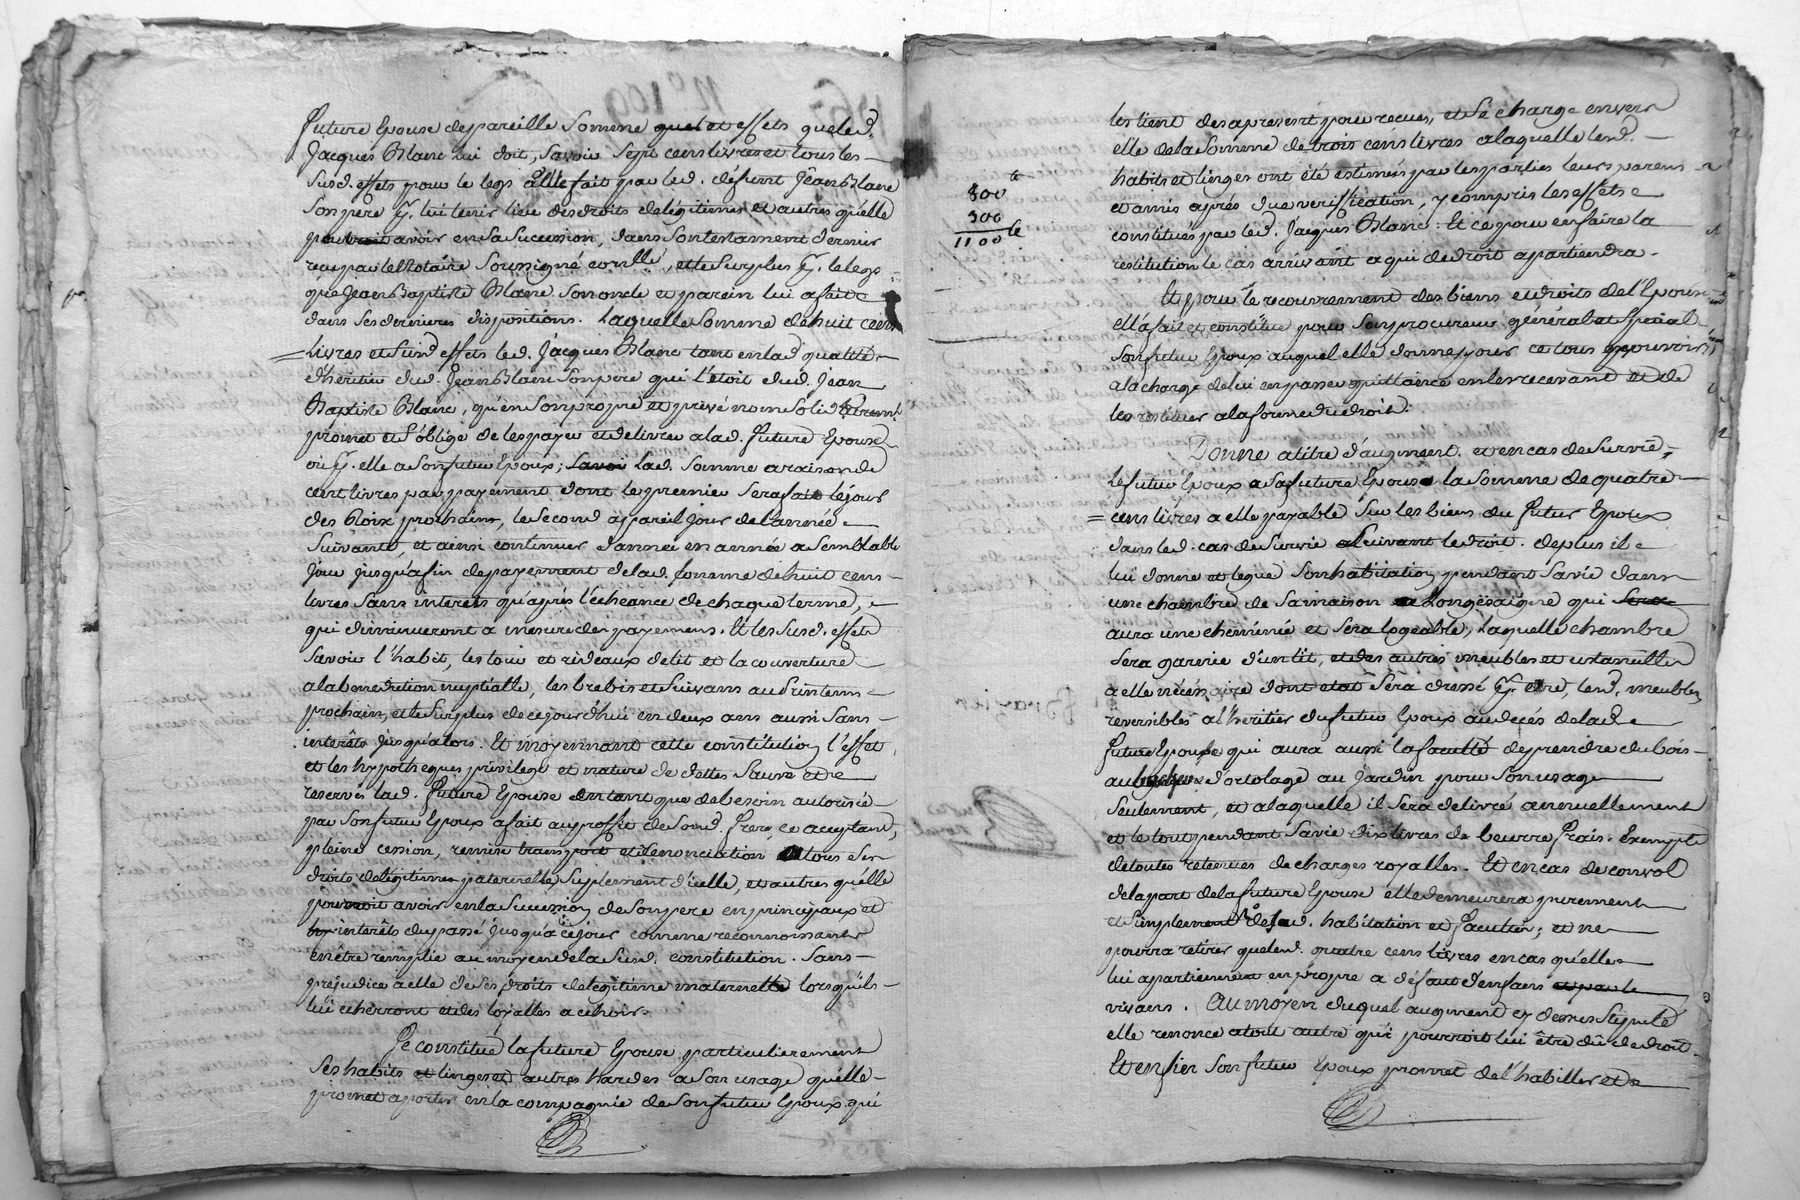 future Epouse de pareille Somme et effets queled.
Jacques Blanc lui doit, Savoir Sept cens livres et tous les
Susd. effets pour le legs a Elle fait par led. défunt Jean Blanc
Son pere pr. lui tenir lieu des droits de légitimes et autres qu'elle
pourroit avoir en Sa Sucession, dans Son testament dernier
reçu par le Notaire Soussigné , et le Surplus pr. le legs
que Jean Baptiste Blanc Son oncle et parein lui a fait
dans Ses dernieres dispositions. Laquelle Somme de huit cens
livres et Susd effets led. Jacques Blanc tant en lad qualité
d'héritier dud. Jean Blanc Son pere qui l'étoit dud. Jean
Baptiste Blanc, qu'en Son propre et privé nom Solidairement
promet et S'oblige de les payer et delivrer a lad. future Epouse
ou pr. elle a Son futur Epoux; Savoir lad. Somme a raison de
cent livres par payement dont le premier Sera fait le jour
des Roix prochain, le Second a pareil jour de l'année
Suivante, et ainsi continuer d'année en année a Semblable
Jour jusqu'a fin de payement de lad. Somme de huit cens
livres Sans intérets qu'après l'échéance de chaque terme,
qui diminueront a mesure des payemens. Et les Susd. effets
Savoir l'habit, les tour et rideaux de lit et la couverture
a la bénédiction nuptialle, les brebis et Suivans au Printems
prochain, et le Surplus de ce jourd'hui en deux ans aussi Sans
intérêts jusqu'alors. Et moyennant cette constitution l'effet
et les hypotheques privilege et nature de dettes Sauve et
reservés lad. future Epouse en tant que de besoin autorisée
par Son futur Epoux a fait au proffit de Sond. frere, ce acceptant,
pleine cession, remise transport et Renonciation a tous Ses
droits de légitimes paternelle, Suplement d'icelle, et autres qu'elle
pourroit avoir en la Sucession de Son pere en principaux et
intérêts du passé jusqu'a ce jour comme reconnoissant
en être remplie au moyen de la Susd. constitution. Sans
préjudice a elle de Ses droits de légitime maternelle lorsqu'ils
lui écherront et des loyalles a échoir.
Se constitué la future Epouse particulierement
Ses habits et linges et autres hardes a Son usage qu'elle
promet aporter en la compagnie de Son futur Epoux qui
800 te
300
1100 te
les tient des apresent pour recues, et Se charge envers
elle de la Somme de trois cens livres a laquelle lesd.
habits et linges ont été estimés par les parties leurs parens
et amis après due veriffication, y compris les effets
constitués par led. Jacques Blanc: Et ce pour en faire la
restitution le cas arrivant a qui de droit apartiendra.
Et pour le recouvrement des biens et droits de l'Epouse
ella fait et constitue pour Son procureur général et Spécial
Son futur Epoux auquel elle donne pour ce tous pouvoirs
a la charge de lui en passer quittance en les recevant et de
les restituer a la forme du droit.
Donne a titre d'augment et en cas de Survie,
le futur Epoux a Sa future Epouse la Somme de quatre
cens livres a elle payable Sur les biens du futur Epoux
dans led. cas de Survie et Suivant le droit. de plus il
lui donne et legue Son habitation pendant Sa vie dans
une chambre de Sa maison a Longesaigne qui
aura une cheminée et Sera logeable, laquelle chambre
Sera garnie d'un lit, et des autres meubles et ustancilles
a elle nécessaire dont etat Sera dressé pr. etre, lesd. meubles,
reversibles a l'heritier du futur Epoux au decés de lad
future Epouse qui aura aussi la faculté de prendre du bois
au d'ortolage au Jardin pour Son usage
Seulement, et a laquelle il Sera delivré annuellement
et le tout pendant Sa vie dix livres de beurre frais. Exempte
de toutes retenues de charges royalles. Et en cas de convol
de la part de la future Epouse elle demeurera purement
et Simplement de lad. habitation et facultés; et ne
pourra retirer que lesd. quatre cens livres en cas qu'elles
lui apartiennent en propre a défaut d'enfans
vivans. Au moyen duquel augment cy dessus Stipulé
elle renonce a tout autre qui pourroit lui être dû de droit.
Et enfin Son futur Epoux promet de l'habiller et